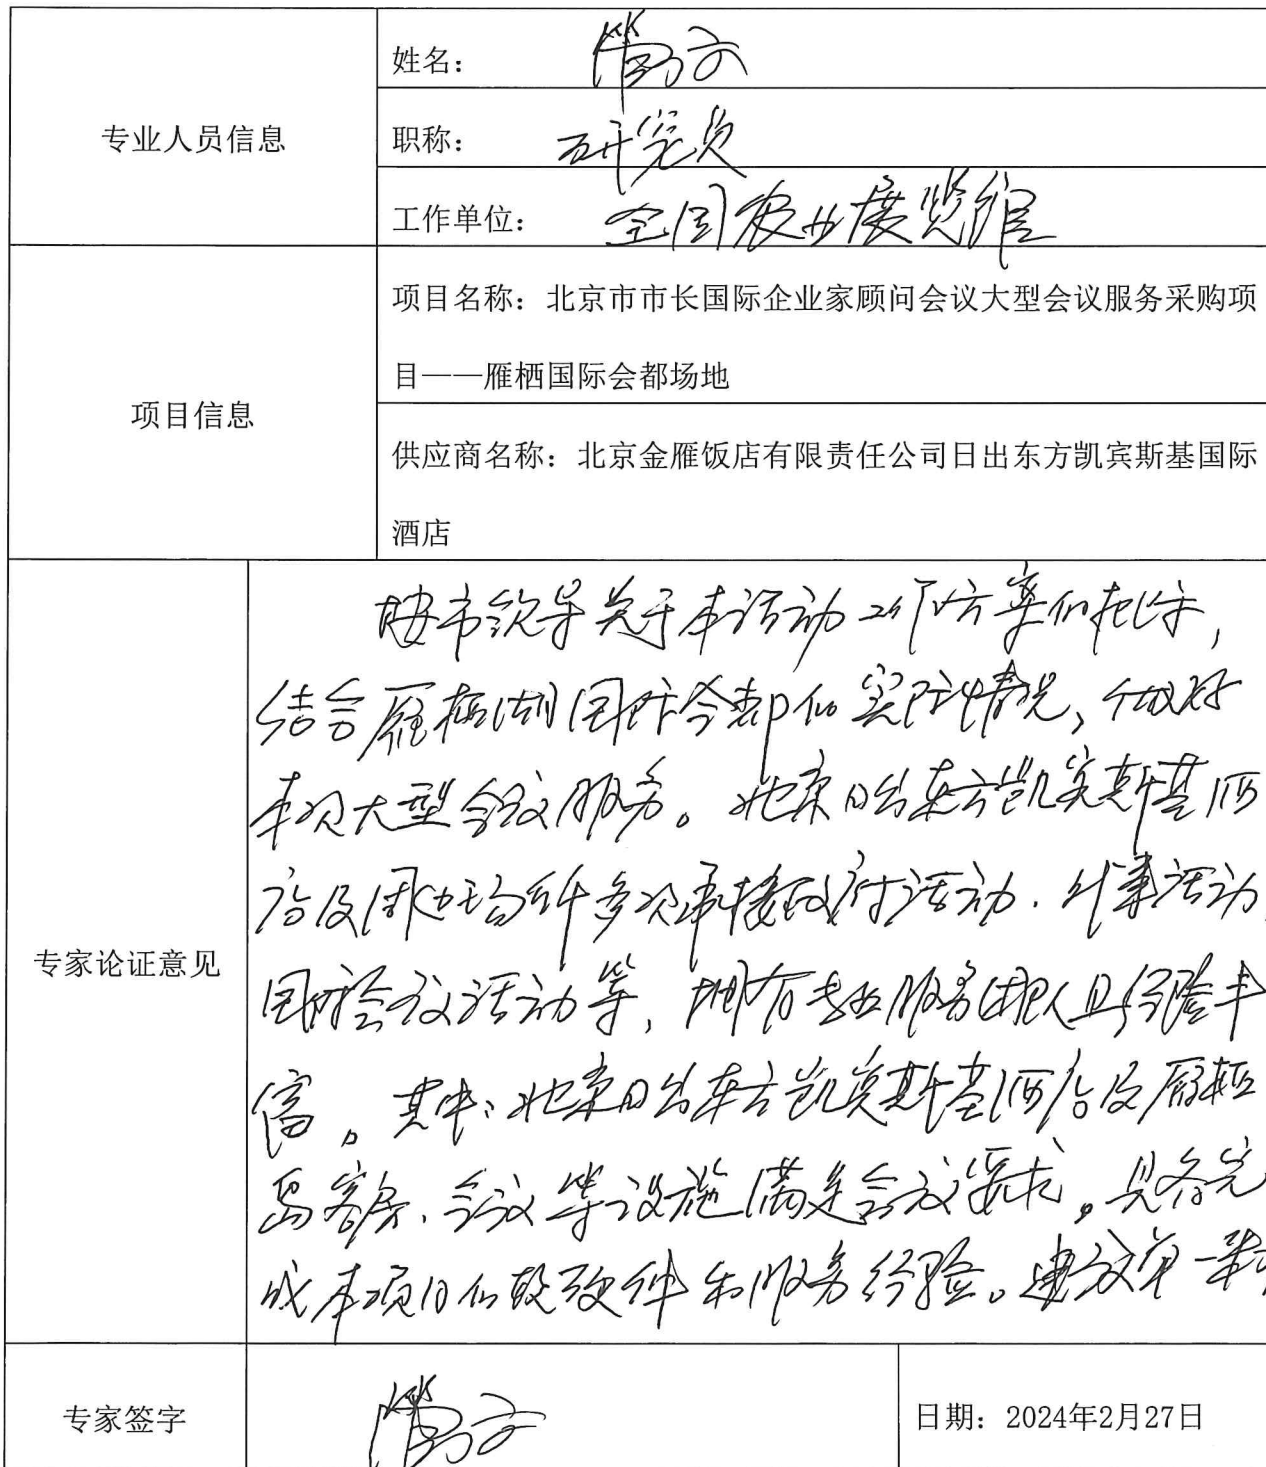 专业人员信息
姓名：
职称： 研究员
工作单位： 全国农业展览馆
项目信息
项目名称：北京市市长国际企业家顾问会议大型会议服务采购项
目——雁栖国际会都场地
供应商名称：北京金雁饭店有限责任公司日出东方凯宾斯基国际
酒店
专家论证意见
按市领导关于本活动工作方案的批示，
结合雁栖湖国际会都的实际情况，做好
本次大型会议服务。北京日出东方凯宾斯基酒
店及周边均有多次承接政府活动、外事活动
国际会议活动等，拥有专业服务团队且经验丰
富。其中：北京日出东方凯宾斯基酒店及雁栖
岛客房、会议等设施满足会议要求。具备完
成本项目的软硬件和服务经验。建议单一来
专家签字
日期：2024年2月27日